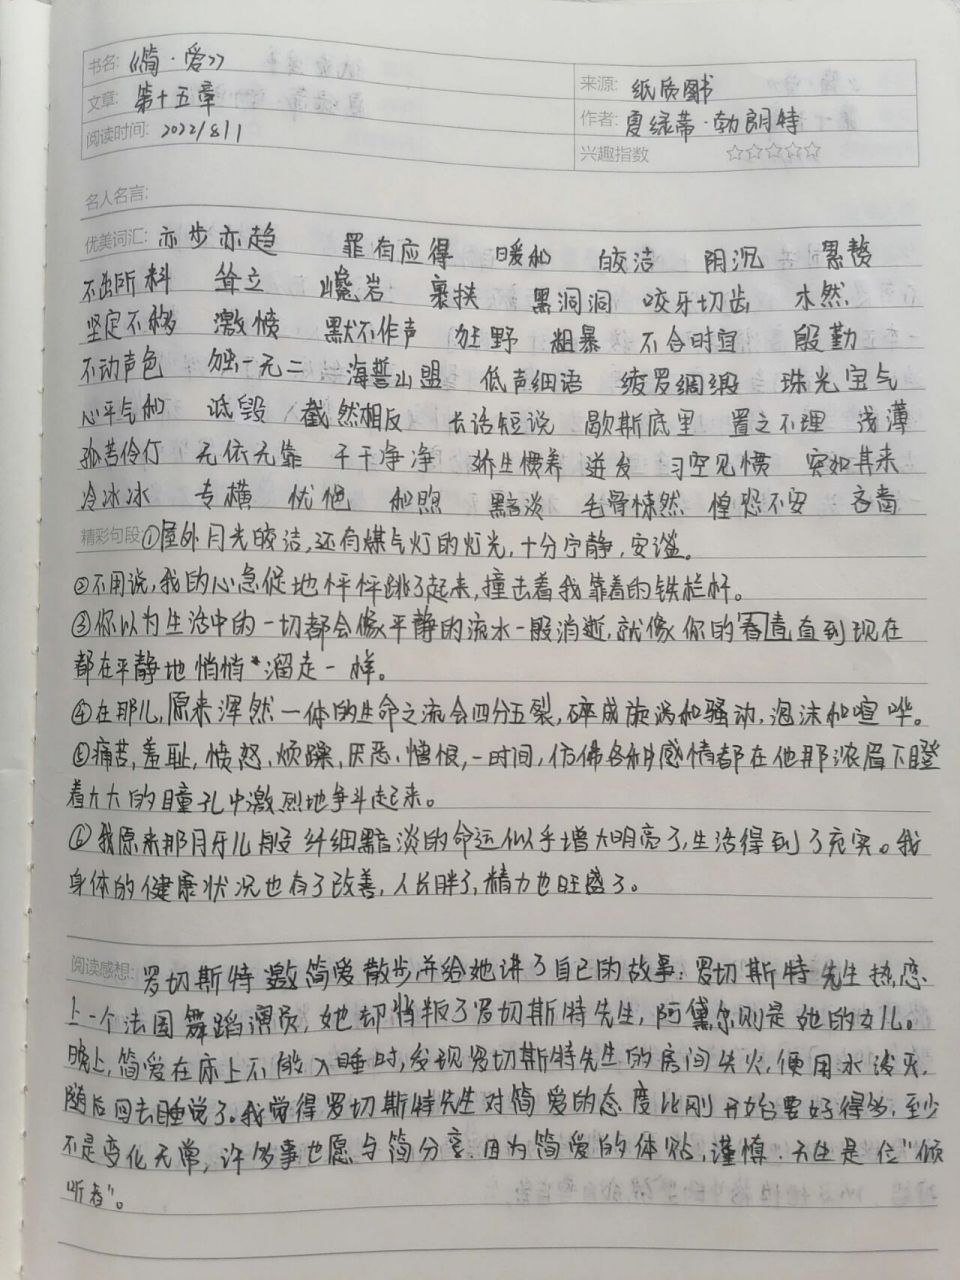 书名: 《简·爱》
来源: 纸质图书
文章: 第十五章
作者: 夏绿蒂·勃朗特
阅读时间: 2022/8/1
兴趣指数 ☆☆☆☆☆
名人名言:
优美词汇: 亦步亦趋 罪有应得 暖和 皎洁 阴沉 累赘
不出所料 耸立 巉岩 裹挟 黑洞洞 咬牙切齿 木然
坚定不移 激愤 默不作声 狂野 粗暴 不合时宜 殷勤
不动声色 独一无二 海誓山盟 低声细语 绫罗绸缎 珠光宝气
心平气和 诋毁 截然相反 长话短说 歇斯底里 置之不理 浅薄
孤苦伶仃 无依无靠 干干净净 娇生惯养 迸发 习空见惯 突如其来
冷冰冰 专横 忧悒 和煦 黯淡 毛骨悚然 惶恐不安 吝啬
精彩句段: ①屋外月光皎洁,还有煤气灯的灯光,十分宁静,安谧。
②不用说,我的心急促地怦怦跳了起来,撞击着我靠着的铁栏杆。
③你以为生活中的一切都会像平静的流水一般消逝,就像你的青春直到现在
都在平静地悄悄溜走一样。
④在那儿,原来浑然一体的生命之流会四分五裂,碎成旋涡和骚动,泡沫和喧哗。
⑤痛苦,羞耻,愤怒,烦躁,厌恶,憎恨,一时间,仿佛各种感情都在他那浓眉下瞪
着大大的瞳孔中激烈地争斗起来。
⑥我原来那月牙儿般纤细黯淡的命运似乎增大明亮了,生活得到了充实。我
身体的健康状况也有了改善,人长胖了,精力也旺盛了。
阅读感想: 罗切斯特邀简爱散步,并给她讲了自己的故事:罗切斯特先生热恋
上一个法国舞蹈演员,她却背叛了罗切斯特先生,阿黛尔则是她的女儿。
晚上,简爱在床上不能入睡时,发现罗切斯特先生的房间失火,便用水泼灭,
随后回去睡觉了。我觉得罗切斯特先生对简爱的态度比刚开始要好得多,至少
不是变化无常,许多事也愿与简分享.因为简爱的体贴,谨慎.天生是位"倾
听者"。